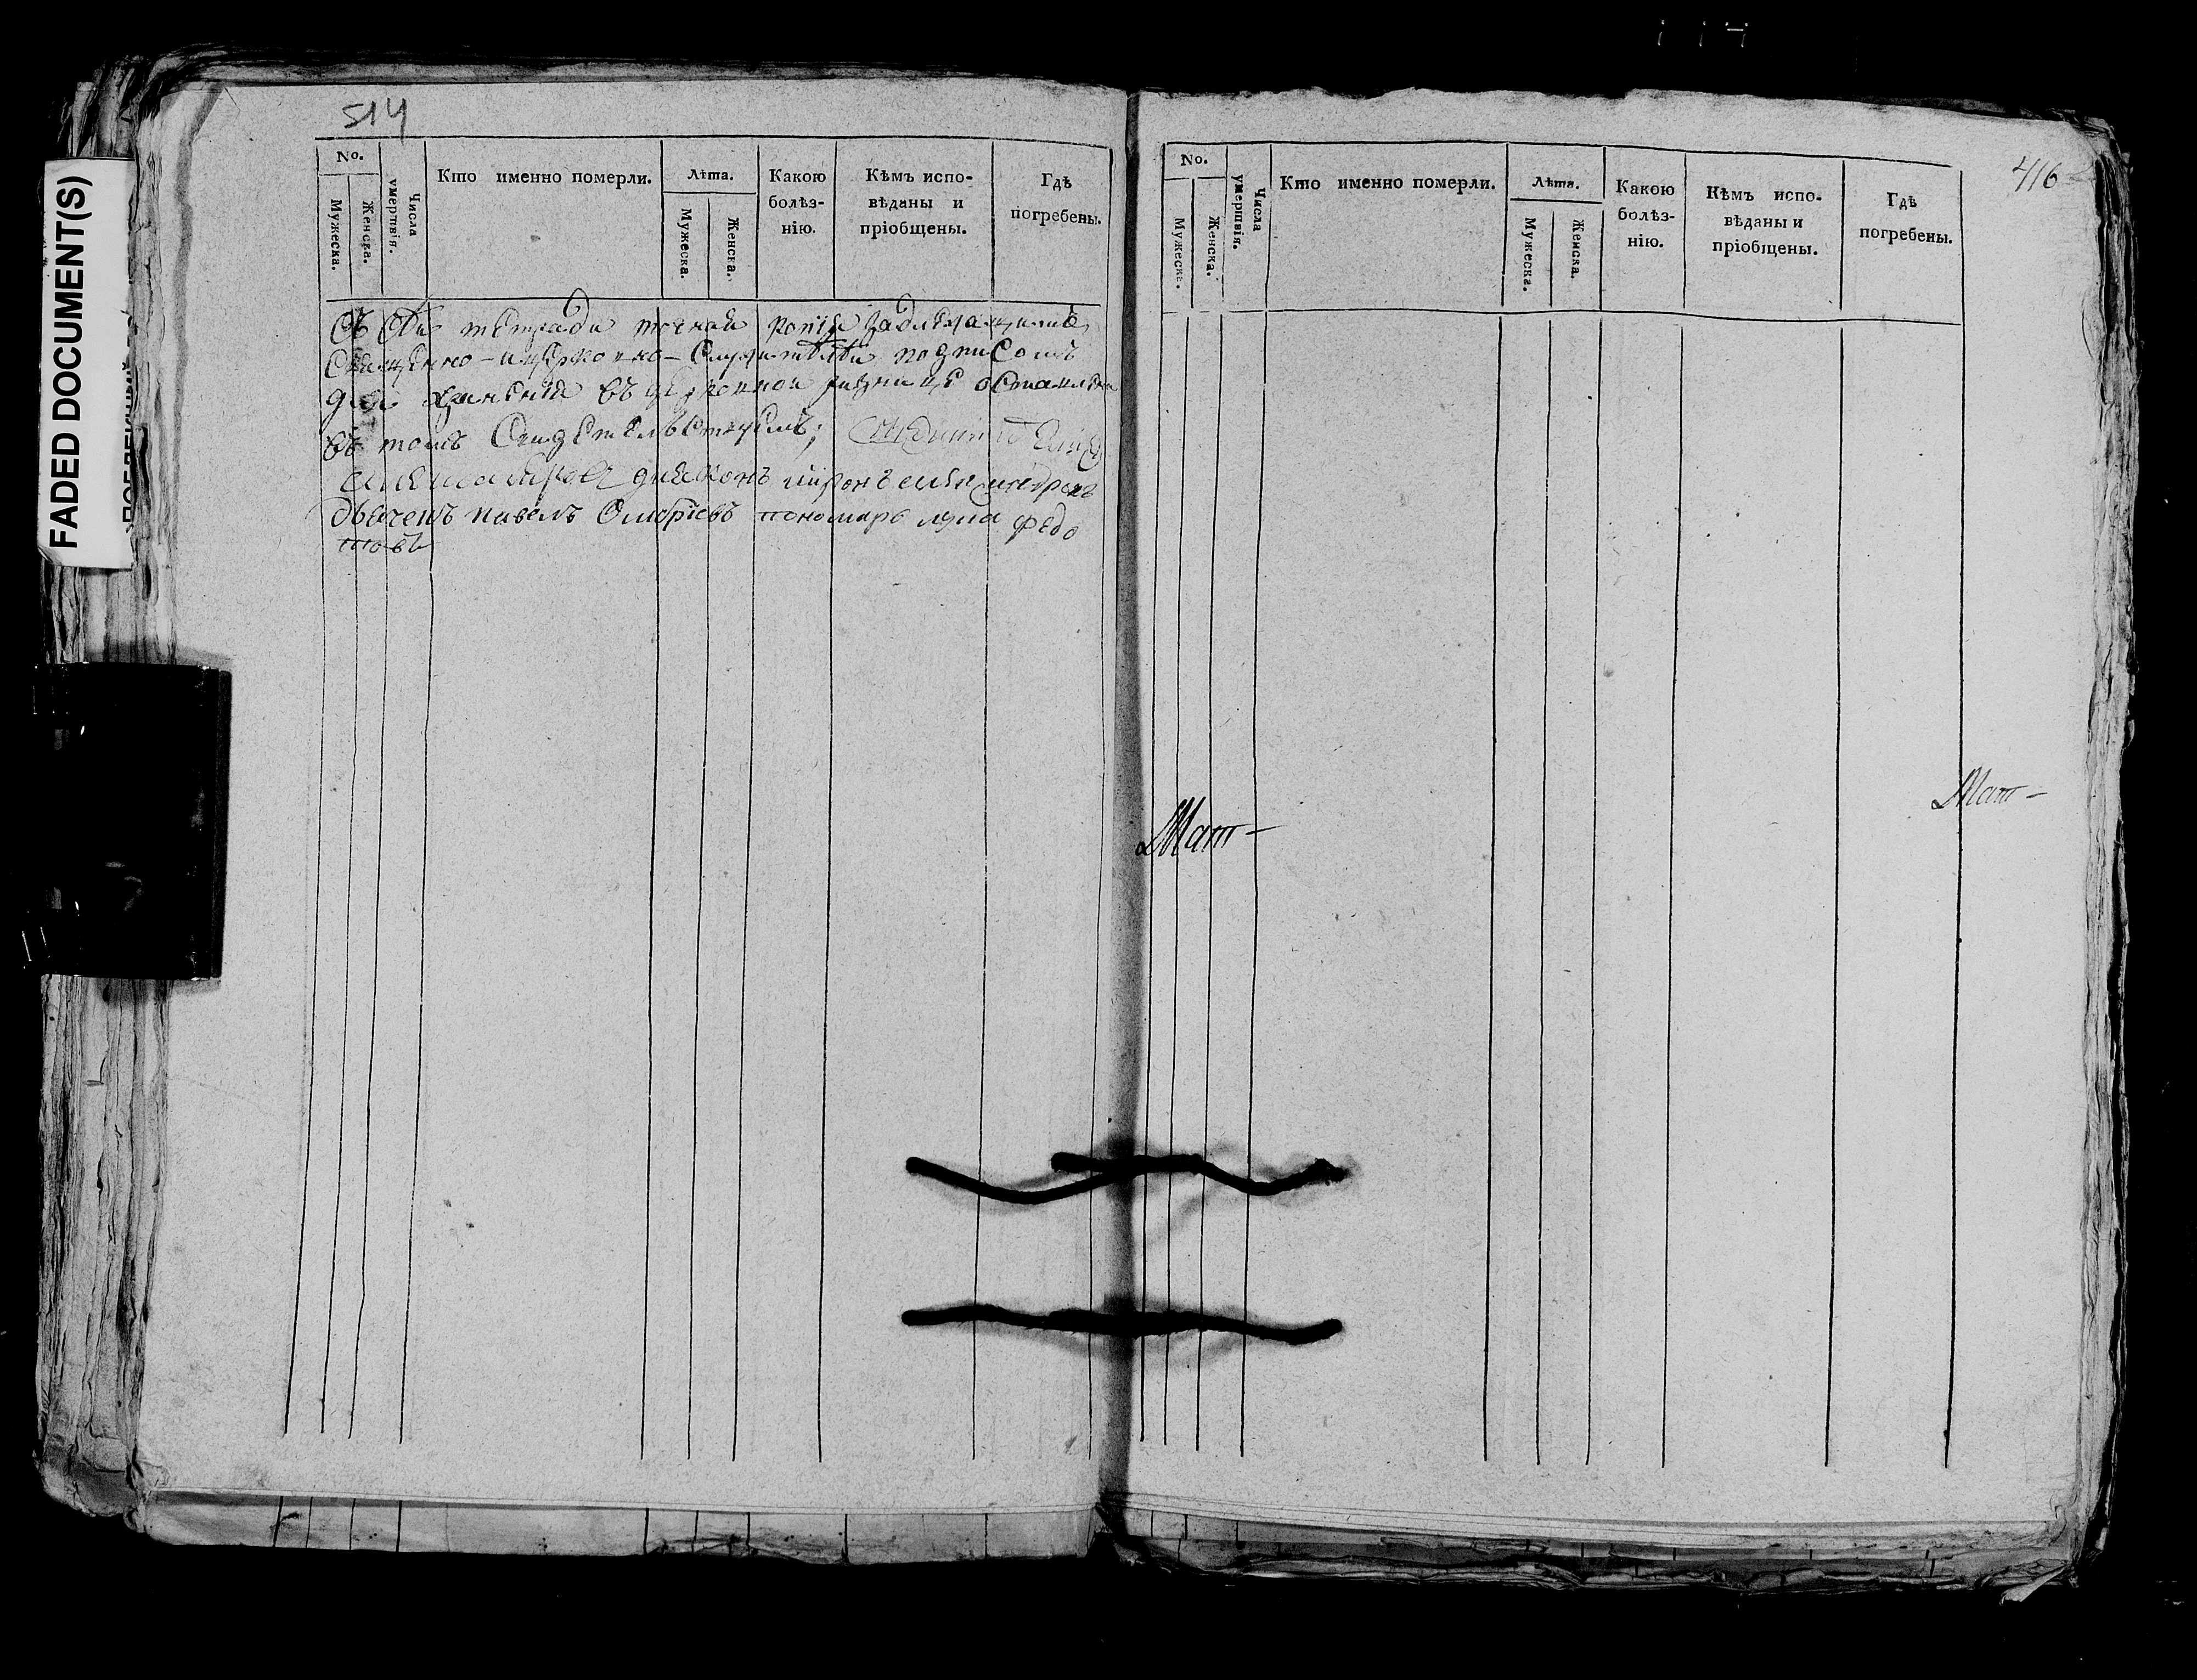 114
514
No.
Мужеска.
Женска.
Числа умертвія.
Кто именно померли.
Лѣта.
Мужеска.
Женска.
Какою болѣз-
нію.
Кѣмъ испо-
вѣданы и
пріобщены.
Гдѣ
погребены.
Съ сей тетради точная копія зa
священно-церковно-служителей подписомъ
для храненія въ церковной ризницѣ оставлена
въ томъ свидетельствуемъ;
діяконъ
дьячекъ павелъ пономарь лука федо
товъ
416
No.
Мужеска.
Женска.
Числа умертвія.
Кто именно померли.
Лѣта.
Мужеска.
Женска.
Какою
болѣз-
нію.
Кѣмъ испо-
вѣданы и
пріобщены.
Гдѣ
погребены.
Мат-
Мат-
FADED DOCUMENT(S)